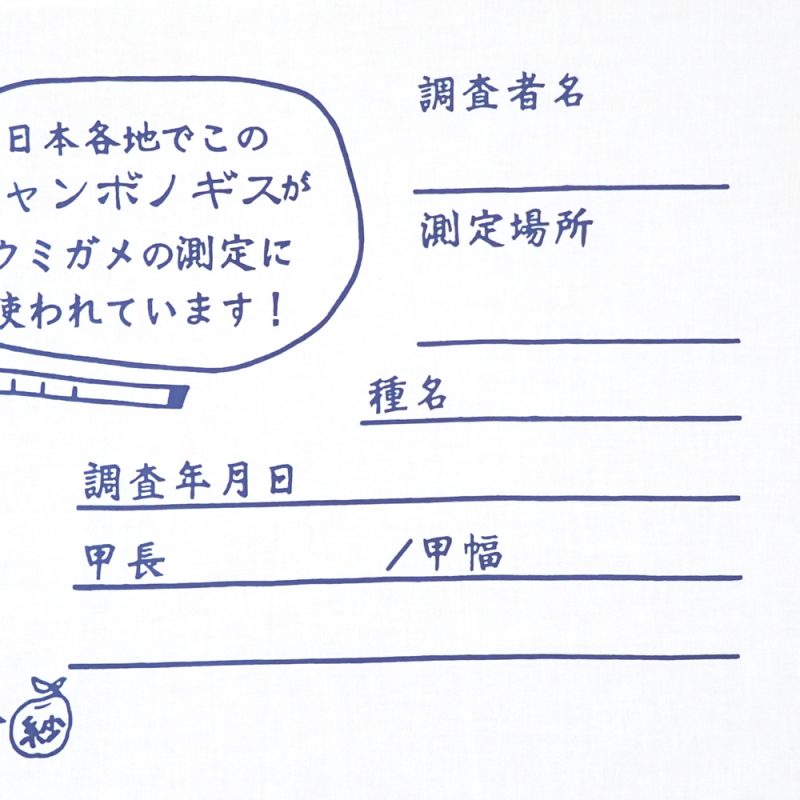 日本各地でこの
ャンボノギスが
ウミガメの測定に
使われています！
調査者名
測定場所
種名
調査年月日
甲長 /甲幅
紗